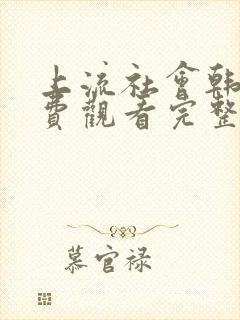 上流社會韩
费觀看完整
慕官禄